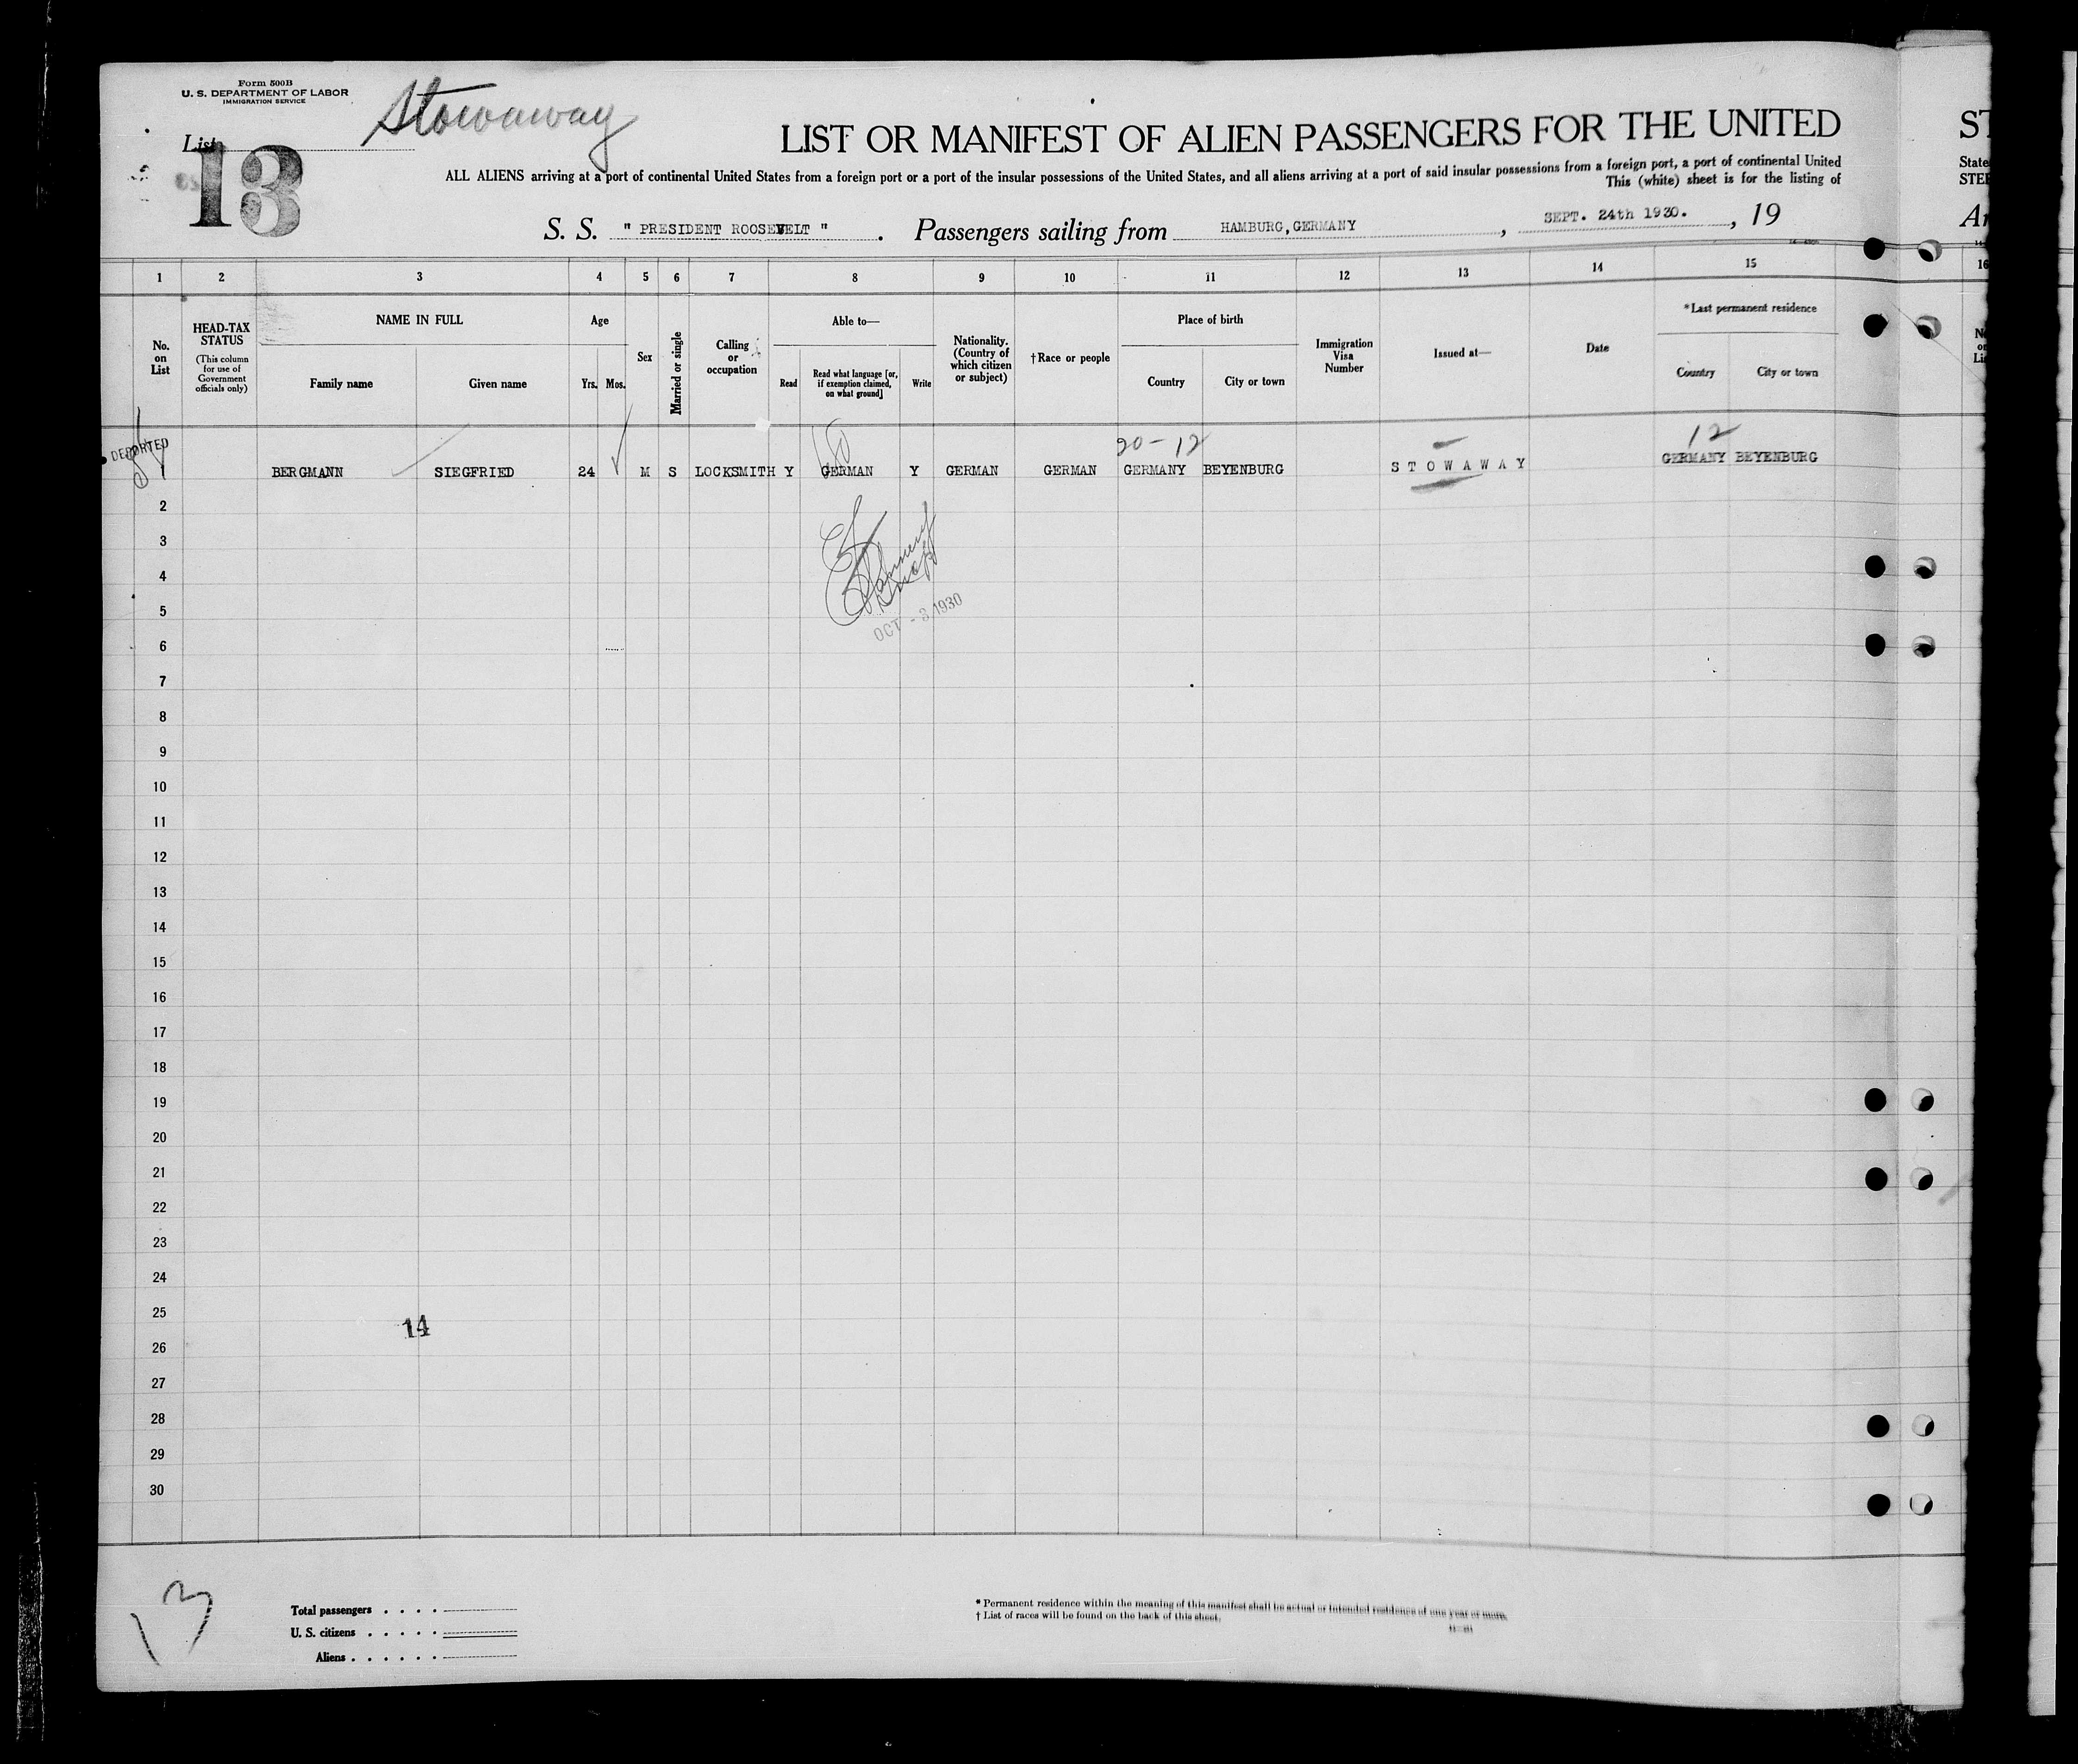 Form 500B
U. S. DEPARTMENT OF LABOR
IMMIGRATION SERVICE
Stowaway
List
13
LIST OR MANIFEST OF ALIEN PASSENGERS FOR THE UNITED
ST
ALL ALIENS arriving at a port of continental United States from a foreign port or a port of the insular possessions of the United States, and all aliens arriving at a port of said insular possessions from a foreign port, a port of continental United
State
This (white) sheet is for the listing of
STEE
S. S. " PRESIDENT ROOSEVELT " . Passengers sailing from HAMBURG, GERMANY , SEPT. 24th 1930. , 19
1 2 3 4 5 6 7 8 9 10 11 12 13 14 15 16
No. on List
HEAD-TAX STATUS
(This column for use of Government officials only)
NAME IN FULL
Family name Given name
Age
Yrs. Mos.
Sex
Married or single
Calling or occupation
Able to—
Read
Read what language [or, if exemption claimed, on what ground]
Write
Nationality. (Country of which citizen or subject)
†Race or people
Place of birth
Country City or town
Immigration Visa Number
Issued at—
Date
*Last permanent residence
Country City or town
DEPORTED
20-12
12
1 BERGMANN SIEGFRIED 24 M S LOCKSMITH Y GERMAN Y GERMAN GERMAN GERMANY BEYENBURG STOWAWAY GERMANY BEYENBURG
2
3
4
5
OCT - 3 1930
6
7
8
9
10
11
12
13
14
15
16
17
18
19
20
21
22
23
24
25
14
26
27
28
29
30
13
Total passengers . . . .
U. S. citizens . . . . .
Aliens . . . . . .
* Permanent residence within the meaning of this manifest shall be actual or intended residence of one year or more.
† List of races will be found on the back of this sheet.